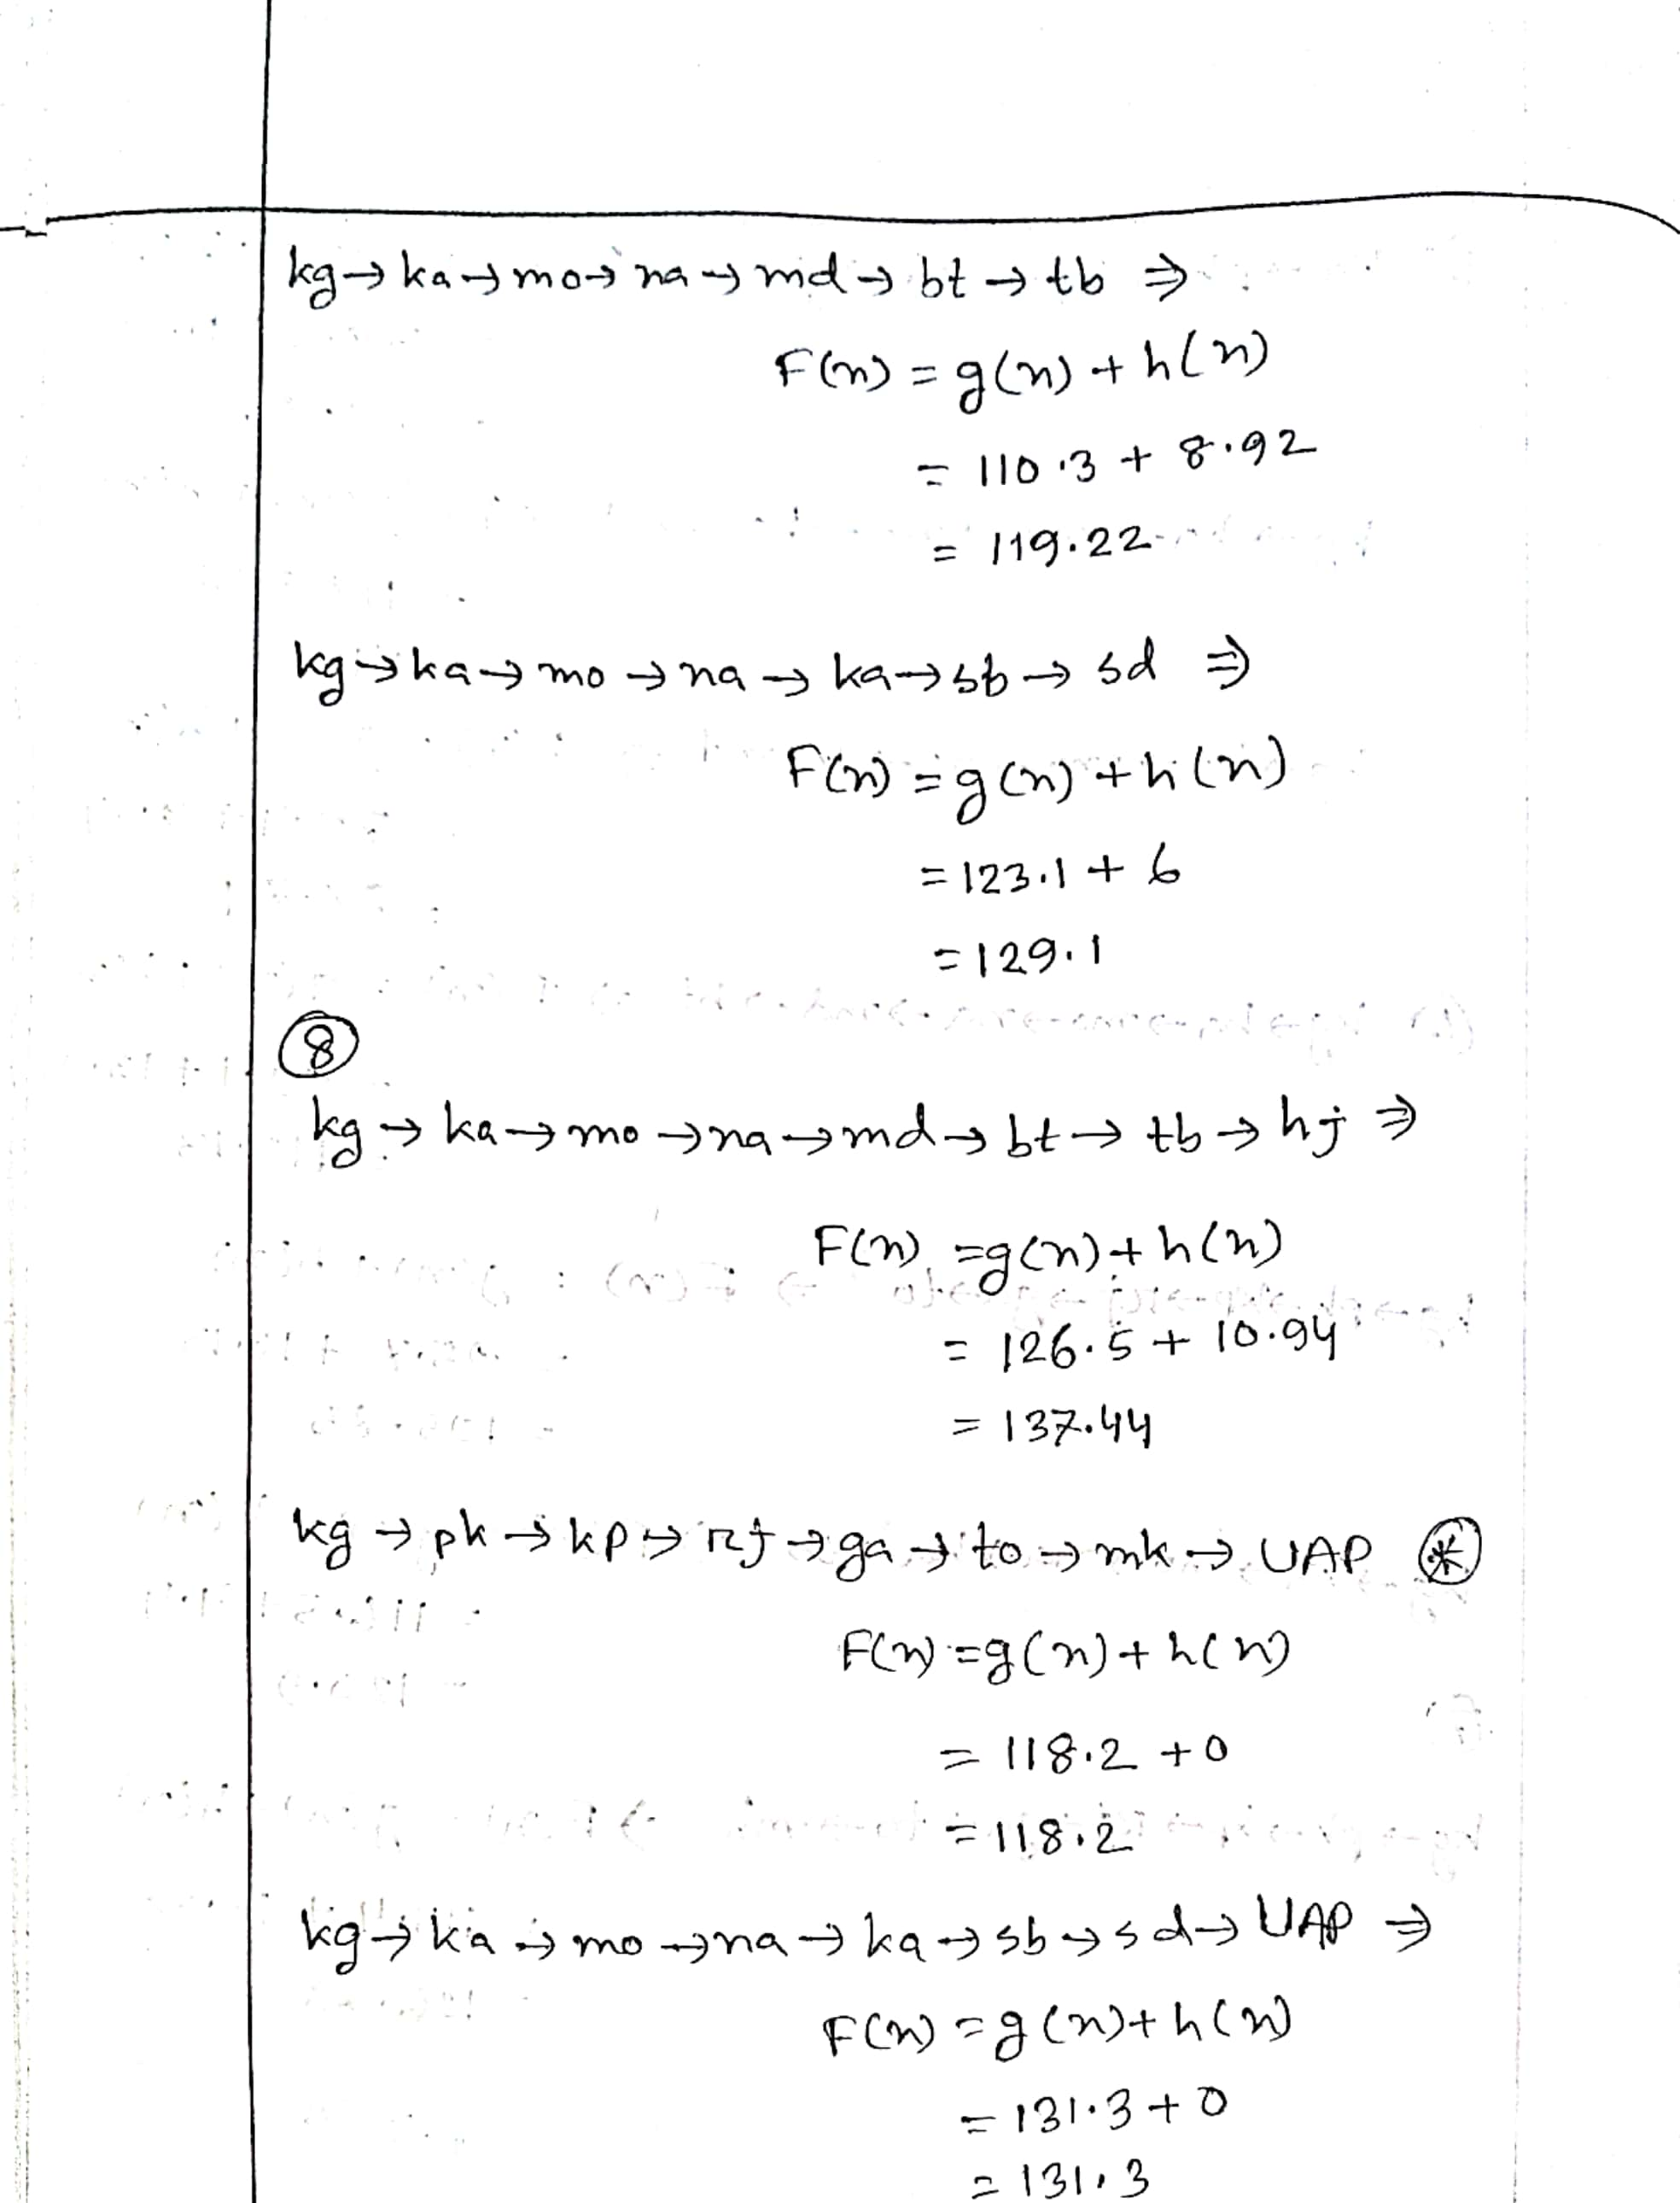 kg→ka→mo→na→md→bt→tb ⇒
F(n) = g(n) + h(n)
= 110.3 + 8.92
= 119.22
kg→ka→mo→na→ka→sb→sd ⇒
F(n) = g(n) + h(n)
= 123.1 + 6
= 129.1
⑧
kg→ka→mo→na→md→bt→tb→hj ⇒
F(n) = g(n) + h(n)
= 126.5 + 10.94
= 137.44
kg→pk→kp→rj→ga→to→mk→UAP ⊛
F(n) = g(n) + h(n)
= 118.2 + 0
= 118.2
kg→ka→mo→na→ka→sb→sd→UAP ⇒
F(n) = g(n) + h(n)
= 131.3 + 0
= 131.3